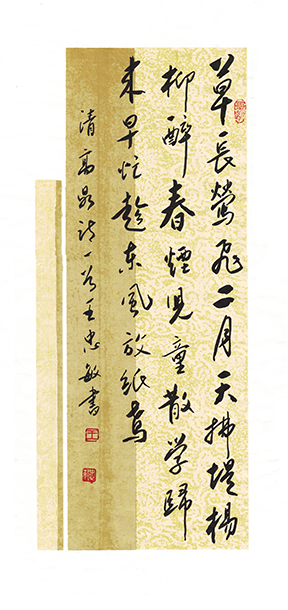 草長鶯飛二月天拂堤楊
柳醉春煙児童散学歸
来早忙趁东風放紙鳶
清高鼎诗一首王忠敏書